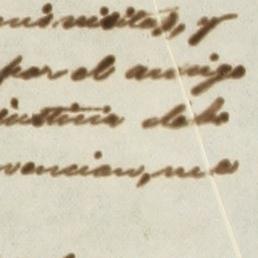 mis visitas, y
por el amigo
justicia debo
vencian, me